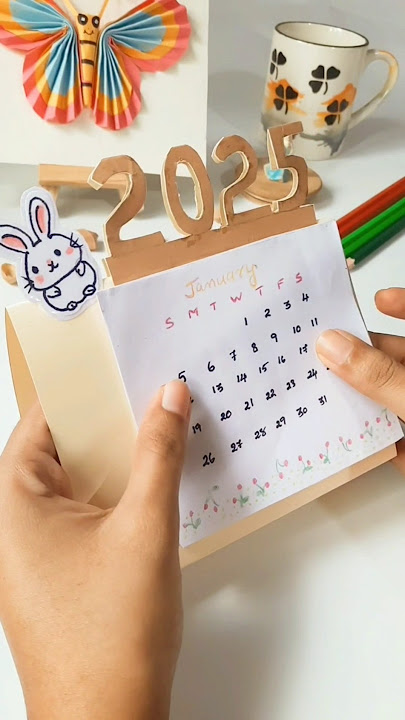 2025
January
S M T W T F S
1 2 3 4
5 6 7 8 9 10 11
13 14 15 16 17
19 20 21 22 23 24
26 27 28 29 30 31